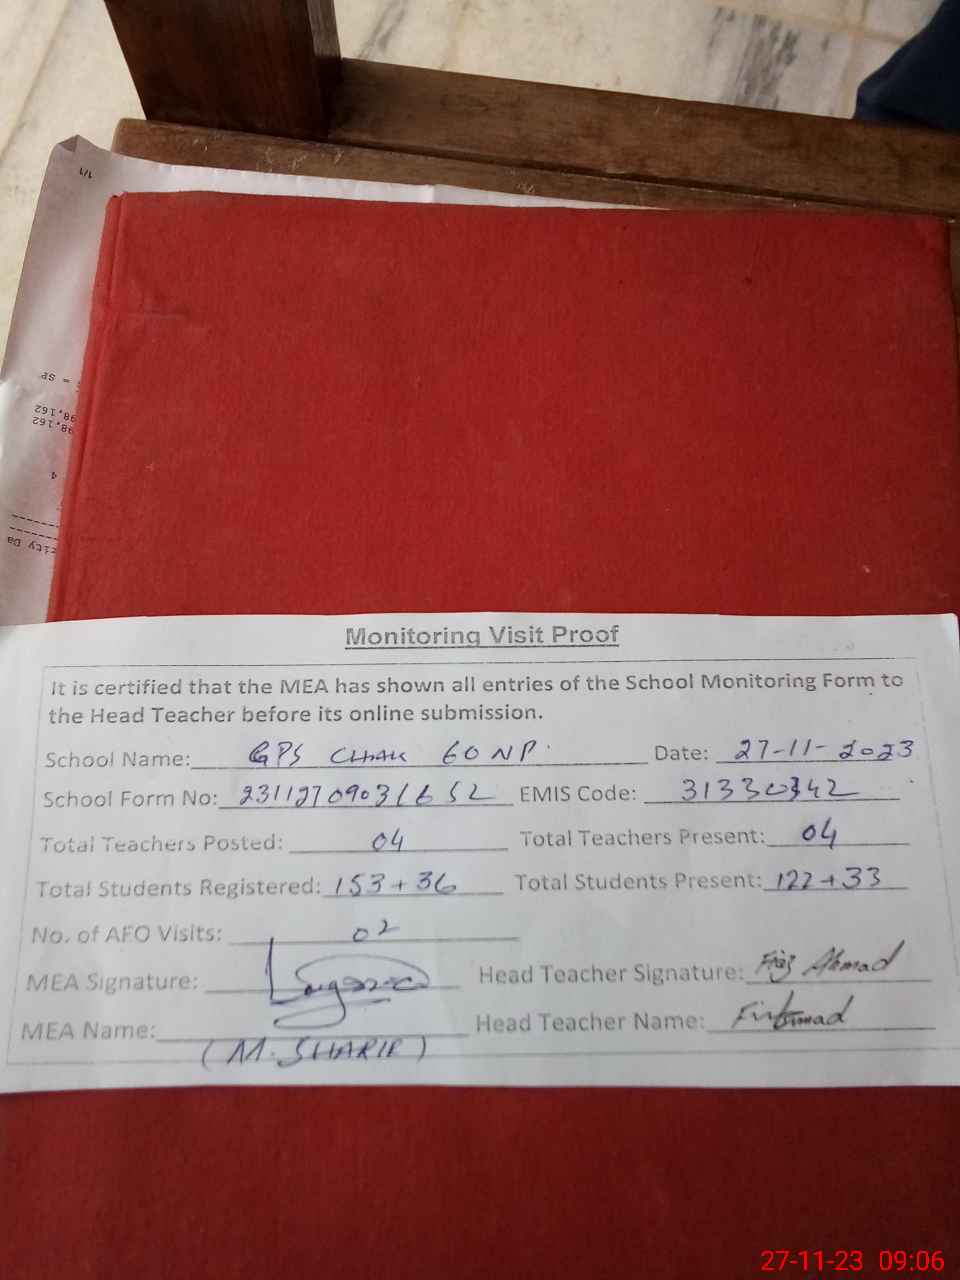 1/1
= SP
98,162
98,162
4
rity Da
Monitoring Visit Proof
It is certified that the MEA has shown all entries of the School Monitoring Form to
the Head Teacher before its online submission.
School Name: GPS CHAK 60 NP. Date: 27-11-2023
School Form No: 23112709031652 EMIS Code: 31330342
Total Teachers Posted: 04 Total Teachers Present: 04
Total Students Registered: 153+36 Total Students Present: 122+33
No. of AEO Visits: 02
MEA Signature: Head Teacher Signature: Fiaz Ahmad
MEA Name: Head Teacher Name:
(M. SHARIF)
27-11-23 09:06